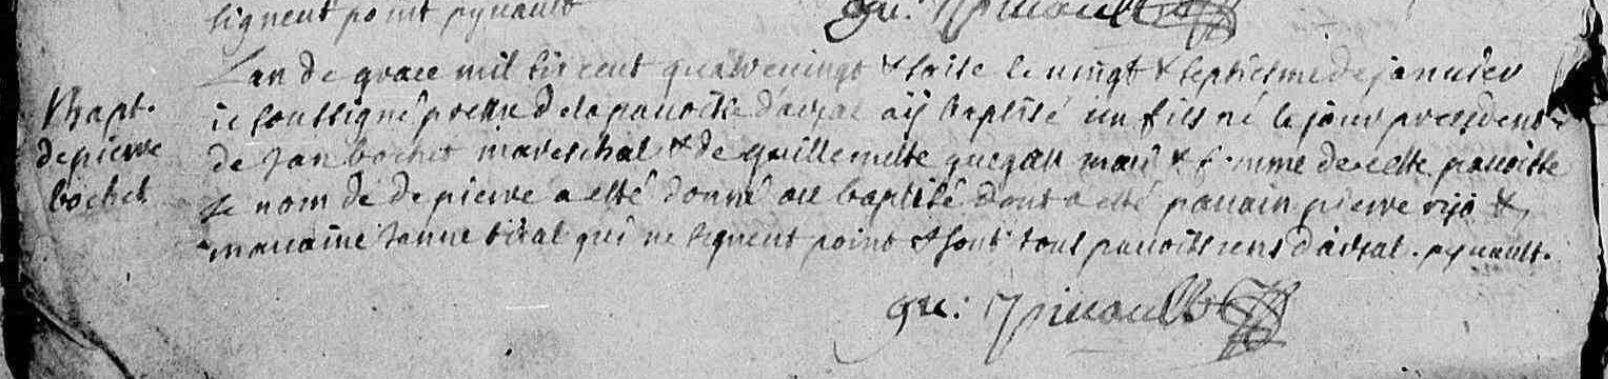 signent point pynault
gu: Pinault
Bapt.
de pierre
bochet
Lan de grace mil six cent quatrevingt & saise le vingt & septiesme de janvier
ie soussigné prestre de la paroisse d'arzal aÿ baptisé un fils né le jour precedent
de Jan bochet mareschal & de guillemette mari & femme de cette paroisse
le nom de de pierre a esté donné au baptisé dont a esté parain pierre rijo &
maraine Janne qui ne signent point & sont tous paroissiens d'arzal. pynault.
gu: Pinault